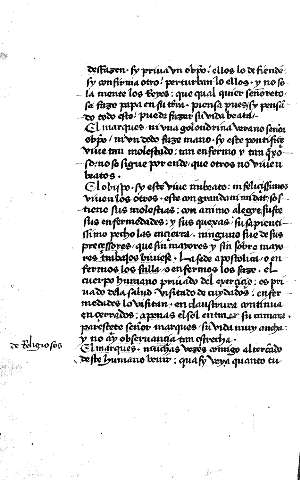 desfazen . sy priva vn obpo: ellos lo defiende
sy confirma otro: perturban lo ellos . y no so
la mente los Reyes: que qual quier señoreto
se faze papa en su trra. piensa pues sy pensa
do todo esto: puede segar su vida beata/
El marques. ni vna golondrina verano señor
obpo/ ni vn dedo faze mano/ sy este pontifice
vive tan molestado: tan enfermo y tan
so: no se sigue por ende que otros no viven
beatos .
El obispo. sy este vive imbeato: ni felicissimos
viven los otros. este con grand
tiene sus molestias: con animo alegre sufre
sus enfermedades: y sus quexas: su sapienti
ssimo pecho las encierra . ninguno fue de sus
precessores que sin mayores y sin sobre mayo
res trabajos biviese . La sede apostolica o en
fermos los falla o enfermos los faze. el
cuerpo humano privado del exerçiçio: es pri
vado dela salud visitado de cuydados: enfer
medades lo visitan. en claustrura continua
ençerrados: apenas el sol entra en su camara
paresçete señor marques su vida muy ancha
y no ay observançia tan estrecha .
de Religiosos
El marques. muchas vezes comigo altercado
de ste humano bevir: qua sy veya quanto tu